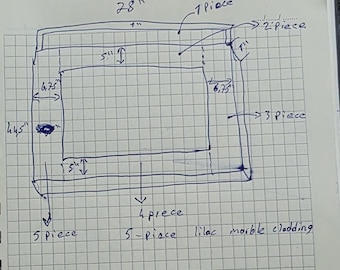 28"
1"
1 piece
2 piece
5"
1"
6.75
6.75
3 piece
44.5"
5"
4 piece
5 piece
5 - piece lilac marble cladding